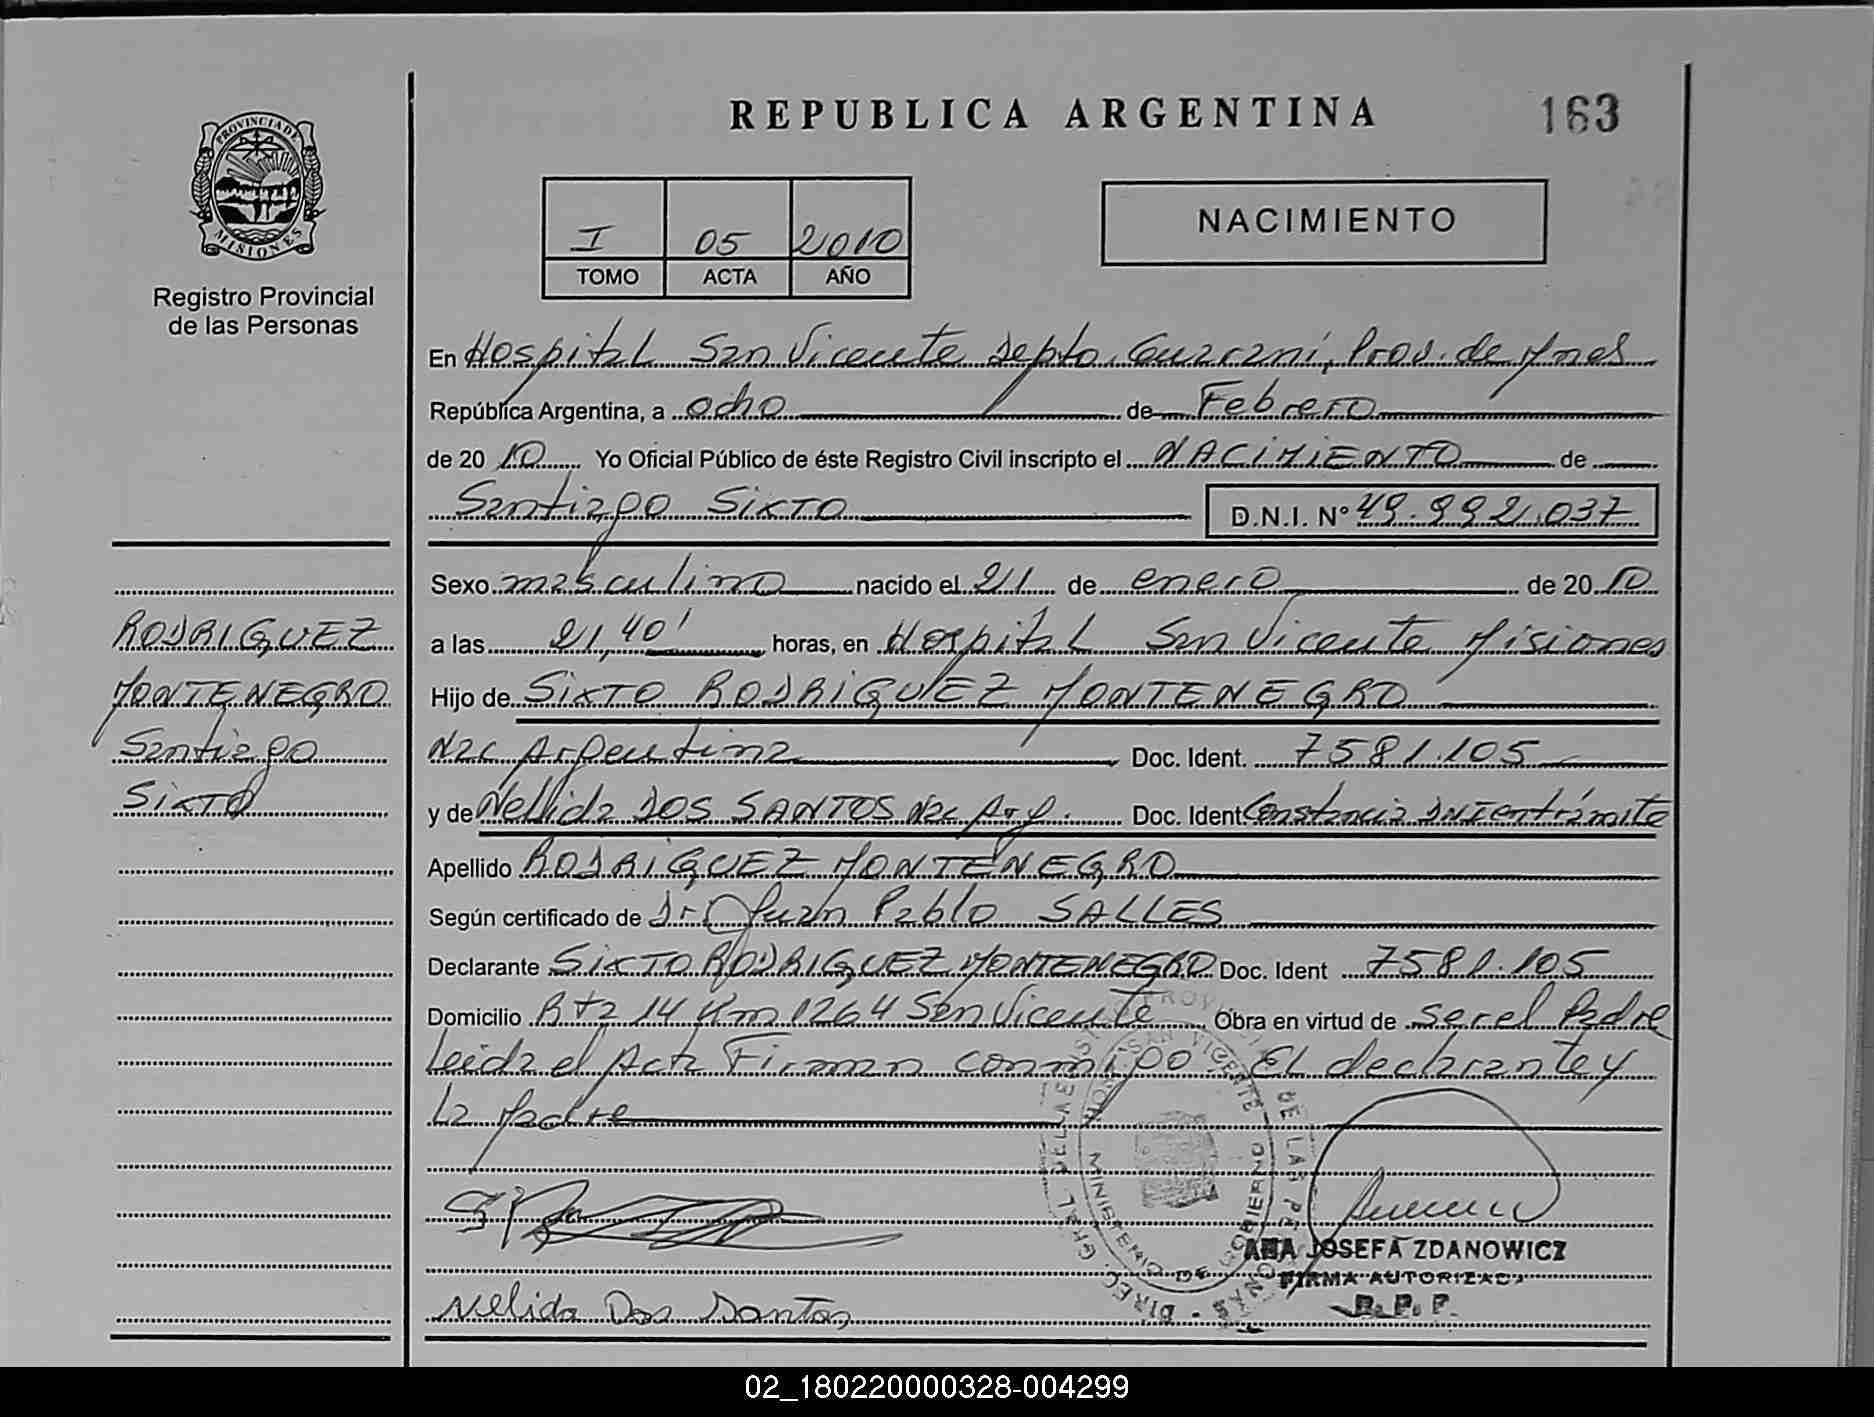 REPUBLICA ARGENTINA
163
PROVINCIA DE MISIONES
Registro Provincial
de las Personas
I 05 2010
TOMO ACTA AÑO
NACIMIENTO
En Hospital San Vicente Depto. Guaraní, Prov. de Mnes
República Argentina, a ocho de Febrero
de 2010 Yo Oficial Público de éste Registro Civil inscripto el NACIMIENTO de
Santiago Sixto D.N.I. N° 49.992.037
Sexo masculino nacido el 21 de enero de 2010
a las 21,40' horas, en Hospital San Vicente Misiones
Hijo de Sixto RODRIGUEZ MONTENEGRO
Nac Argentina Doc. Ident. 7581.105
y de Nellida DOS SANTOS Nac Arg. Doc. Ident Constancia DNI en trámite
Apellido RODRIGUEZ MONTENEGRO
Según certificado de Dr. Juan Pablo SALLES
Declarante SIXTO RODRIGUEZ MONTENEGRO Doc. Ident 7581.105
Domicilio Rta 14 Km 1264 San Vicente Obra en virtud de ser el Padre
Leida el Acta Firman conmigo El declarante y
La Madre
RODRIGUEZ
MONTENEGRO
Santiago
Sixto
SAN VICENTE
MINISTERIO DE GOBIERNO
ANA JOSEFA ZDANOWICZ
FIRMA AUTORIZADA
R.P.P.
Nelida Dos Santos
02_180220000328-004299